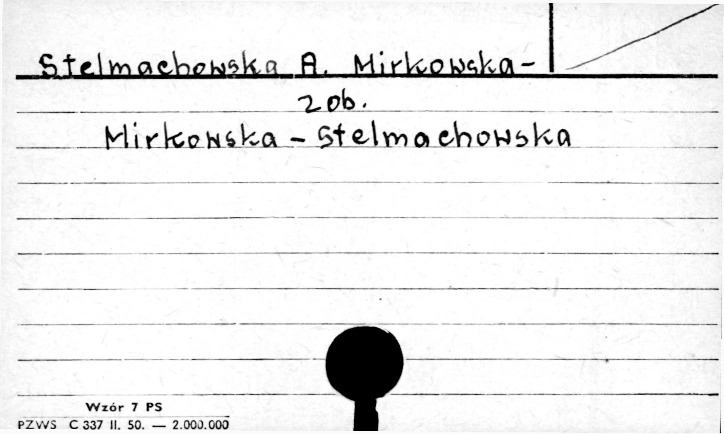 Stelmachowska A. Mirkowska-
zob.
Mirkowska - Stelmachowska
Wzór 7 PS
PZWS C 337 II. 50. — 2.000.000